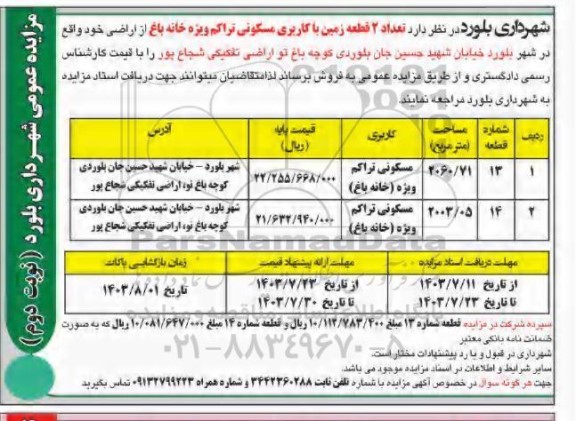 مزایده عمومی شهرداری بلورد (نوبت دوم)
شهرداری بلورد در نظر دارد تعداد ۲ قطعه زمین با کاربری مسکونی تراکم ویژه خانه باغ از اراضی خود واقع
در شهر بلورد خیابان شهید حسین جان بلوردی کوچه باغ نو اراضی تفکیکی شجاع پور را با قیمت کارشناس
رسمی دادگستری و از طریق مزایده عمومی به فروش برساند لذا متقاضیان میتوانند جهت دریافت استاد مزایده
به شهرداری بلورد مراجعه نمایند.
ردیف شماره قطعه مساحت (متر مربع) کاربری قیمت پایه (ریال) آدرس
۱ ۱۳ ۲۰۶۰/۷۱ مسکونی تراکم ویژه (خانه باغ) ۲۲/۲۵۵/۶۶۸/۰۰۰ شهر بلورد – خیابان شهید حسین جان بلوردی کوچه باغ نو، اراضی تفکیکی شجاع پور
۲ ۱۴ ۲۰۰۳/۰۵ مسکونی تراکم ویژه (خانه باغ) ۲۱/۶۳۲/۹۴۰/۰۰۰ شهر بلورد – خیابان شهید حسین جان بلوردی کوچه باغ نو، اراضی تفکیکی شجاع پور
مهلت دریافت اسناد مزایده مهلت ارائه پیشنهاد قیمت زمان بازگشایی پاکات
از تاریخ ۱۴۰۳/۷/۱۱ از تاریخ ۱۴۰۳/۷/۲۳ تاریخ ۱۴۰۳/۸/۰۱
تا تاریخ ۱۴۰۳/۷/۲۳ تا تاریخ ۱۴۰۳/۷/۳۰
سپرده شرکت در مزایده قطعه شماره ۱۳ مبلغ ۱۰/۱۱۲/۷۸۳/۴۰۰ ریال و قطعه شماره ۱۴ مبلغ ۱۰/۰۸۱/۶۴۷/۰۰۰ ریال که به صورت
ضمانت نامه بانکی معتبر
شهرداری در قبول و یا رد پیشنهادات مختار است.
سایر شرایط و اطلاعات در اسناد مزایده موجود می باشد.
جهت هر گونه سوال در خصوص آگهی مزایده با شماره تلفن ثابت ۳۴۴۲۳۶۰۲۸۸ و شماره همراه ۰۹۱۳۲۷۹۹۲۲۳ تماس بگیرید
ParsNamadData
۰۲۱-۸۸۳۴۹۶۷۰-۵